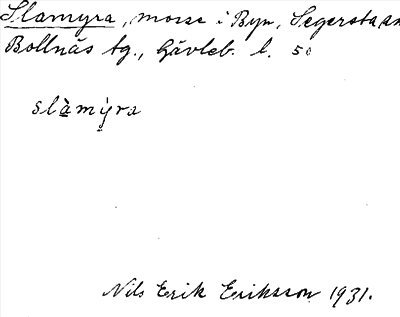 Slamyra, mosse i Byn, Segersta sn
Bollnäs tg., Gävleb. l. 50
slàmỳra
Nils Erik Eriksson 1931.